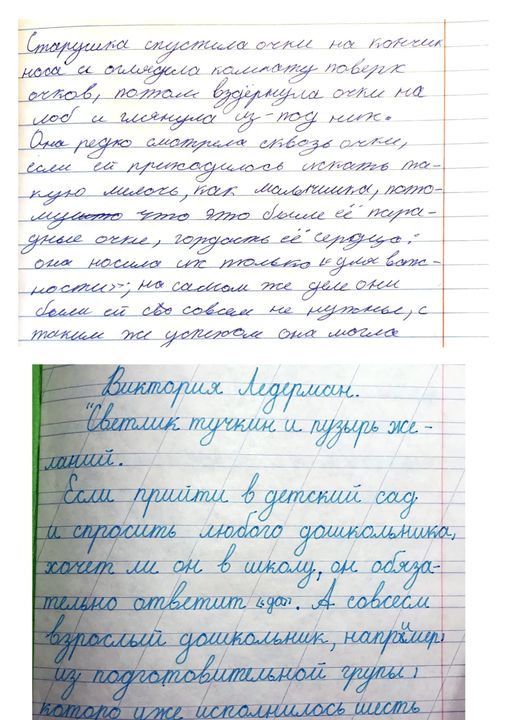 Старушка спустила очки на кончик
носа и оглядела комнату поверх
очков, потом вздёрнула очки на
лоб и глянула из-под них.
Она редко смотрела сквозь очки,
если ей приходилось искать та-
кую мелочь, как мальчишка, пото-
му что это были её пара-
дные очки, гордость её сердца:
она носила их только "для важ-
ности"; на самом же деле они
были ей совсем не нужны, с
таким же успехом она могла
Виктория Ледерман.
"Светлик тучкин и пузырь же-
ланий.
Если прийти в детский сад
и спросить любого дошкольника,
хочет ли он в школу, он обяза-
тельно ответит "да". А совсем
взрослый дошкольник, например,
из подготовительной групы,
которо уже исполнилось шесть